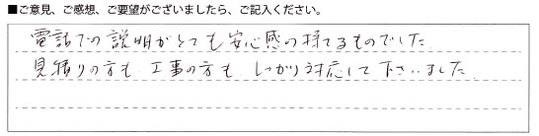 ■ご意見、ご感想、ご要望がございましたら、ご記入ください。
電話での説明がとても安心感の持てるものでした
見積りの方も 工事の方も しっかり対応して下さいました